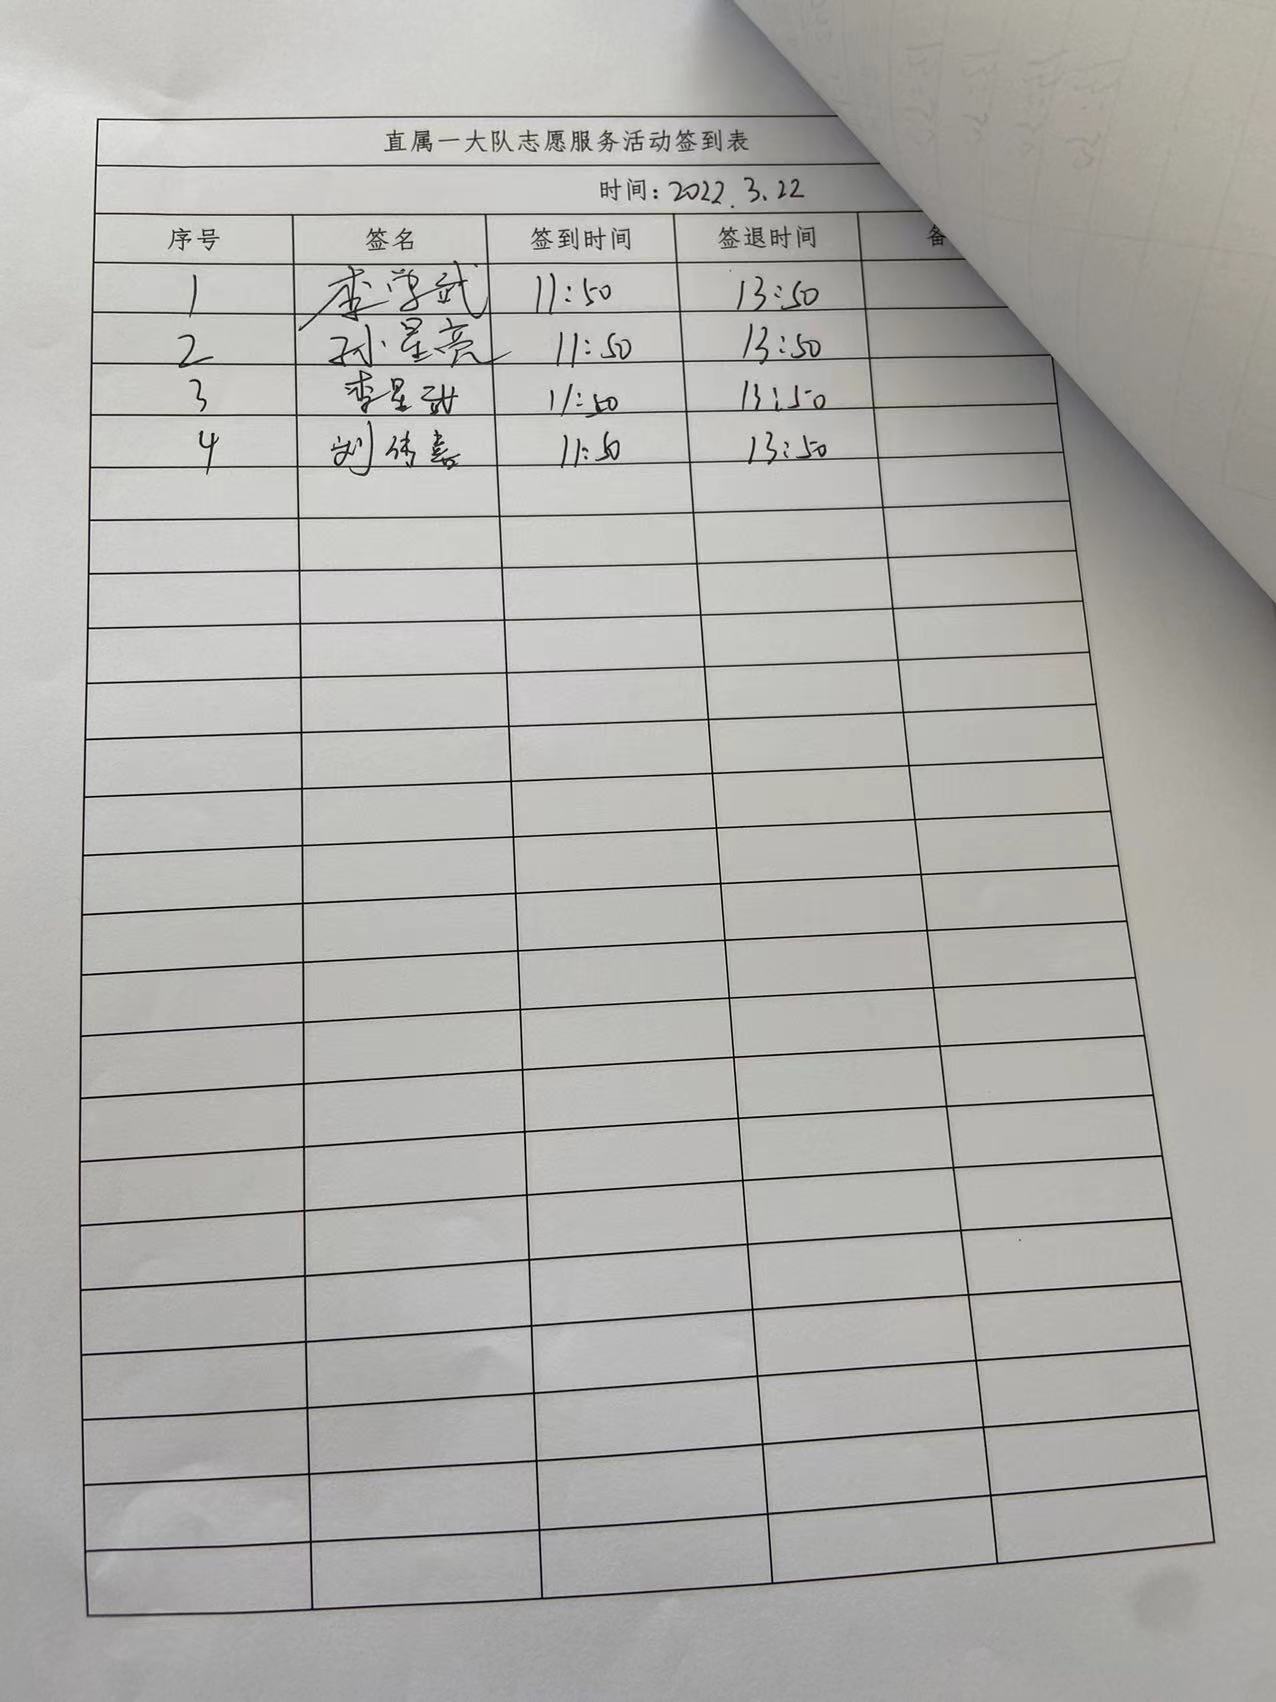 直属一大队志愿服务活动签到表
时间: 2022.3.22
序号 签名 签到时间 签退时间 备
1 李学武 11:50 13:50
2 孙星亮 11:50 13:50
3 李星 11:50 13:50
4 刘传嘉 11:50 13:50